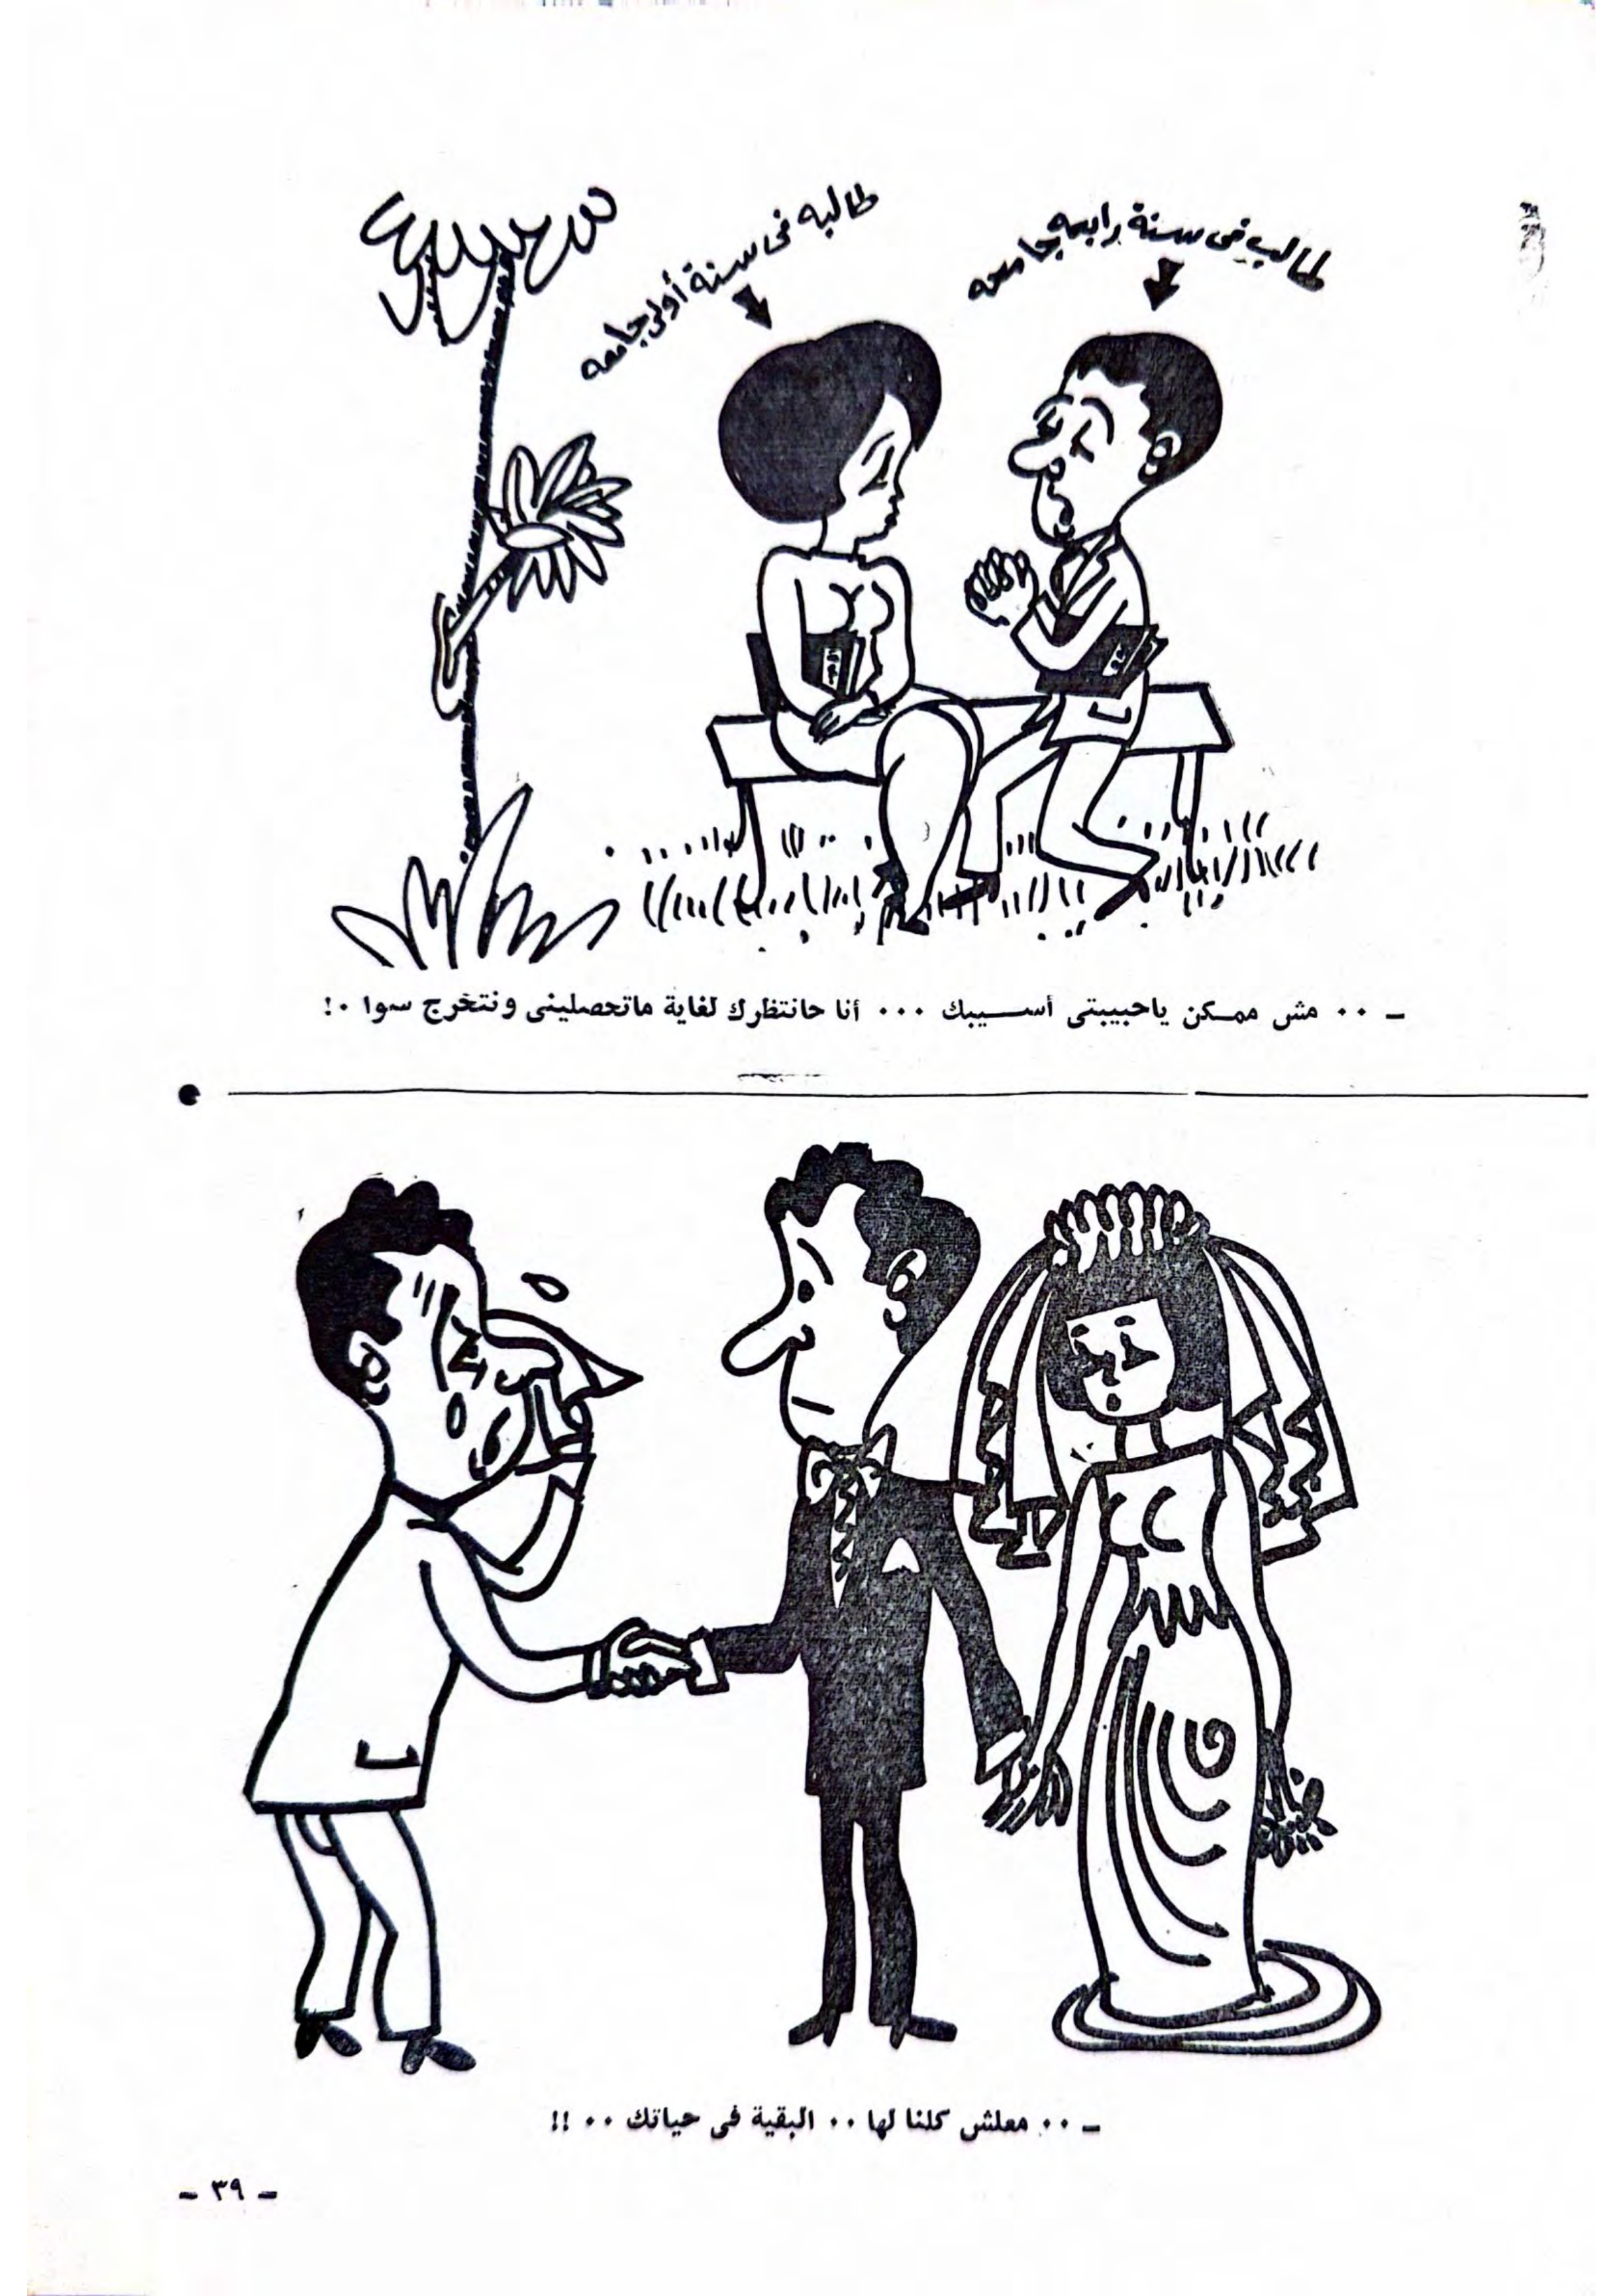 طالب فى سنة رابعه جامعه
طالبه فى سنة أولى جامعه
ـ ٠٠ مش ممكن ياحبيبتى أسيبك ٠٠٠ أنا حانتظرك لغاية ماتحصلينى ونتخرج سوا ٠!
ـ ٠٠ معلش كلنا لها ٠٠ البقية فى حياتك ٠٠ !!
ـ ٣٩ ـ